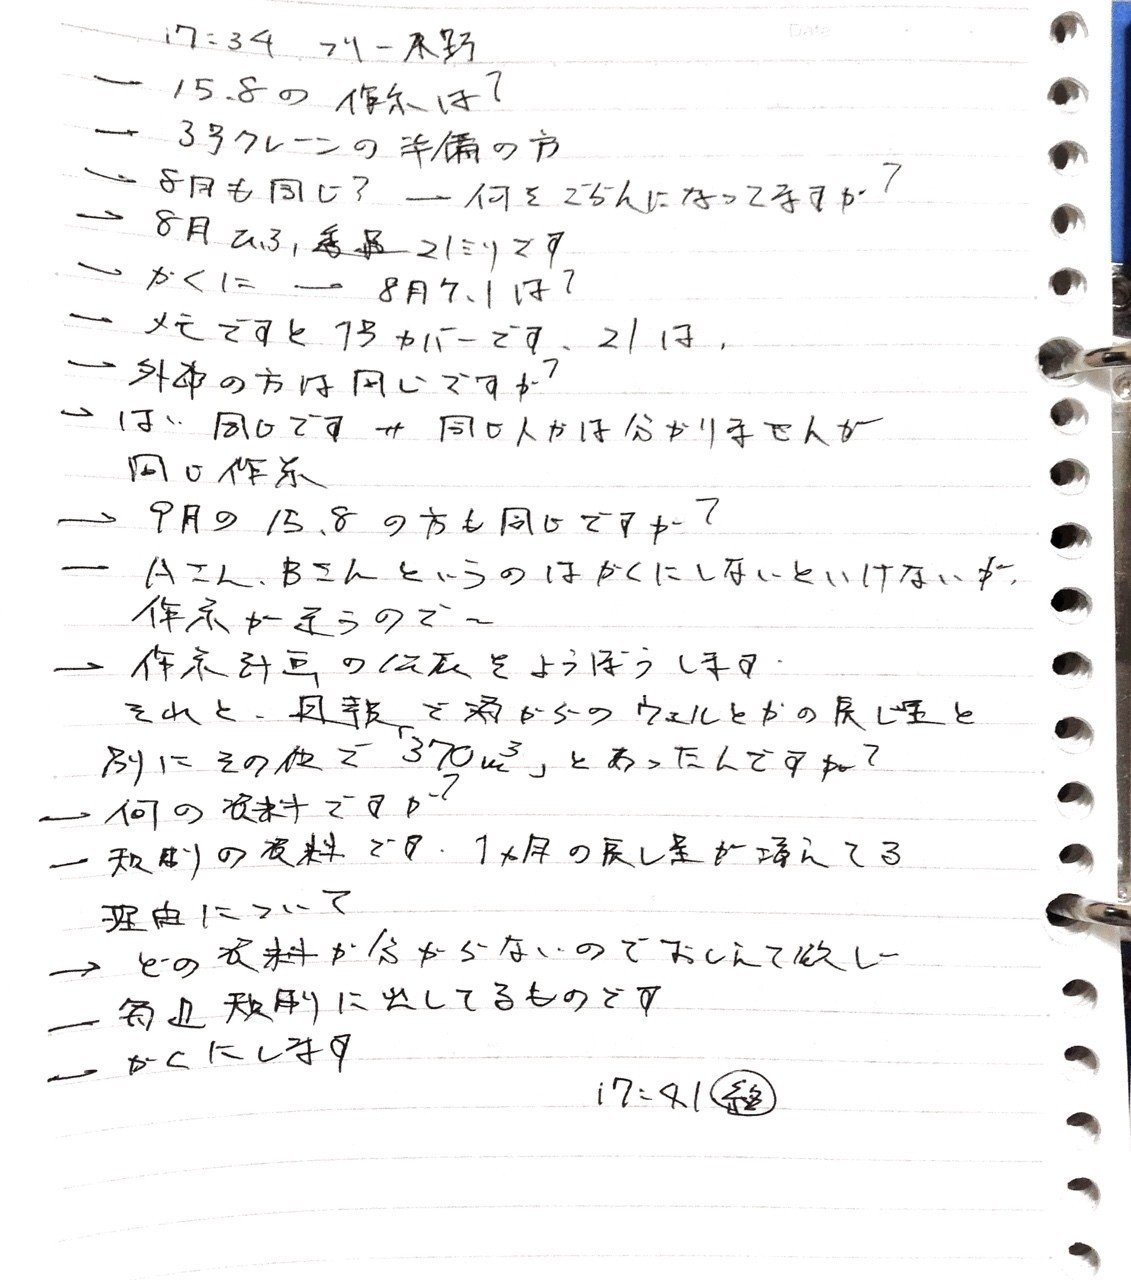 17:34 フリー木野
ー 15.8の作業は?
ー 3号クレーンの準備の方
ー 8月も同じ? ー 何をごらんになってますか?
ー 8月 21ミリです
ー かくに ー 8月7.1は?
ー メモですと1号カバーです、21は、
ー 外部の方は同じですか?
→ はい 同じです 同じ人かは分かりませんが
同じ作業
→ 9月の15.8の方も同じですか?
ー Aさん、Bさんというのはかくにしないといけないが、
作業が違うので~
→ 作業計画の公表をようぼうします.
それと、日報で 濤からのウェルとかの戻し量と
別にその他で「370m³」とあったんですが?
→ 何の資料ですか?
ー 規制の資料です. 1ヵ月の戻し量が増えてる
理由について
→ どの資料か分からないのでおしえて欲しー
ー 毎週 規制に出してるものです
→ かくにします
17:41 終